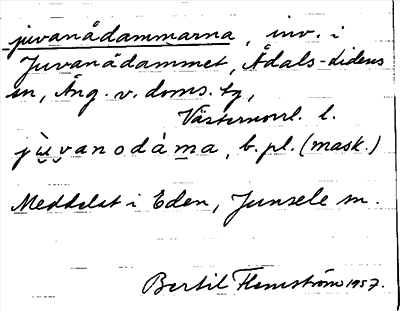 juvanådammarna, inv. i
Juvanådammet, Ådals-Lidens
sn, Ång. v. doms. tg,
Västernorrl. l.
jùvanodàma, b. pl. (mask.)
Meddelat i Eden, Junsele sn.
Bertil Flemström 1957.